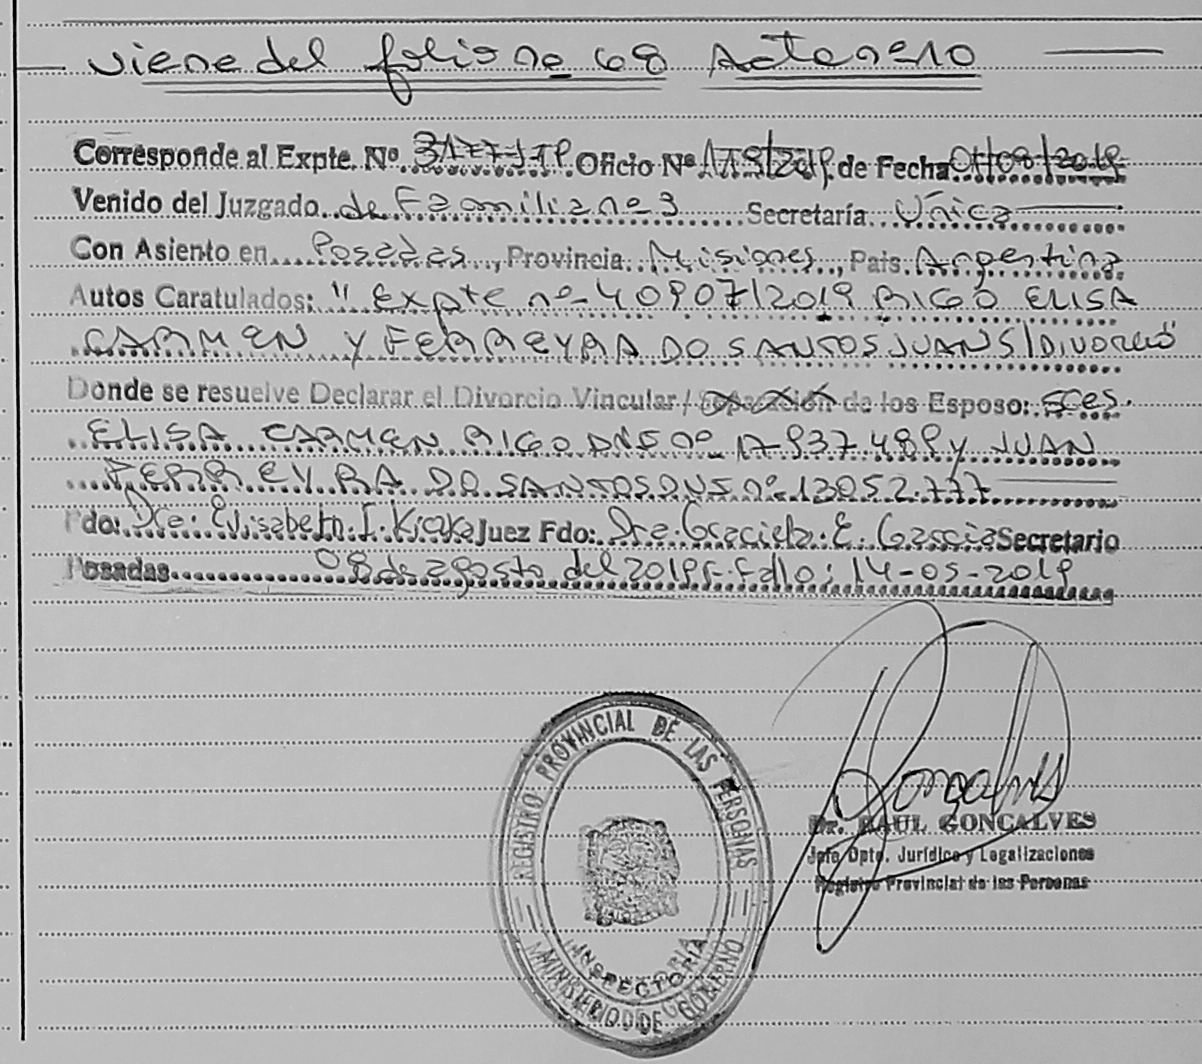 viene del folio no 68 Acta nº 10
Corresponde al Expte. Nº 3177-J-19 Oficio Nº 175/2019 de Fecha 01/08/2019
Venido del Juzgado de Familia nº 3 Secretaría Única
Con Asiento en Posadas, Provincia Misiones, Pais Argentina
Autos Caratulados: "Expte nº 40907/2019 RIGO ELISA
CARMEN Y FERREYRA DO SANTOS JUAN S/DIVORCIO"
Donde se resuelve Declarar el Divorcio Vincular / Separación de los Esposo: sres.
ELISA CARMEN RIGO DNI nº 17.937.489 y JUAN
FERREYRA DO SANTOS DNI nº 13052.777
Fdo: Dra. Elisabeth I. Juez Fdo: Dra. Graciela E. Garcia Secretario
Posadas 08 de agosto del 2019 F. Fallo: 14-05-2019
REGISTRO PROVINCIAL DE LAS PERSONAS
INSPECTORIA
MINISTERIO DE GOBIERNO
Dr. RAUL GONCALVES
Jefe Dpto. Jurídico y Legalizaciones
Registro Provincial de las Personas